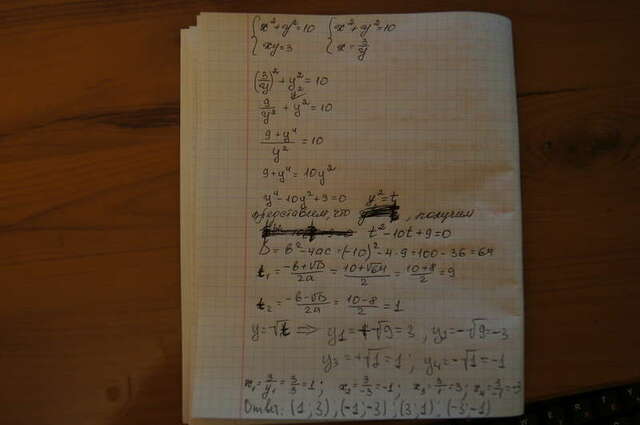 {x²+y²=10 {x²+y²=10
{xy=3 {x=3/y
(3/y)²+y²=10
9/y²+y²=10
(9+y⁴)/y²=10
9+y⁴=10y²
y⁴-10y²+9=0 y²=t
представим, что , получим
t²-10t+9=0
D=в²-4ac=(-10)²-4·9=100-36=64
t₁=(-в+√D)/2a=(10+√64)/2=(10+8)/2=9
t₂=(-в-√D)/2a=(10-8)/2=1
y=√t ⇒ y₁=+√9=3, y₂=-√9=-3
y₃=+√1=1; y₄=-√1=-1
x₁=3/y₁=3/3=1; x₂=3/-3=-1; x₃=3/1=3; x₄=3/-1=-3
Ответ: (1;3), (-1;-3); (3;1); (-3;-1)